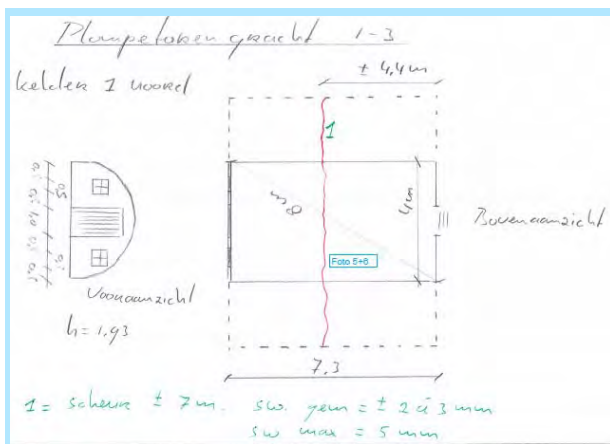 Plompetorengracht 1-3
kelder 1 noord
± 4,4m
1
8m
4m
Bovenaanzicht
Foto 5+6
Vooraanzicht
h = 1,93
7,3
1 = scheur ± 7m. sw. gem = ± 2 à 3 mm
sw max = 5 mm